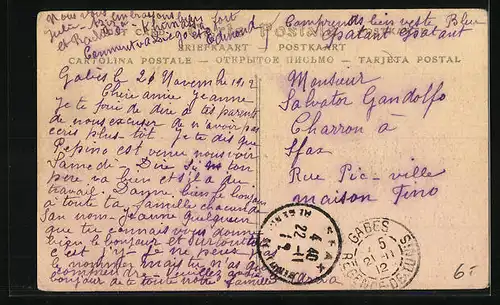 Nous vous embrayons
fort
et Edmond
Comprends bien veste Bleu
Epatant Epatant
POST CARD
BRIEFKAART POSTKAART
CARTOLINA POSTALE — ОТКРЫТОЕ ПИСЬМО — TARJETA POSTAL
Gabès le 20 Novembre 1912
Chère amie Jeanne
Je te prie de dire à tes parents
de nous excuser de n'avoir pas
ecris plus tôt. Je te dis que
Pepino est venu nous voir
Samedi - Dire si ton
père va bien et s'il a du
travail. Donne bien le bonjour
à toute ta famille chacun de
San nom. Jeanne quelqu'un
que tu connais vous donne
bien le bonjour et surtout
c'est je ne peux pas
le nommer mais tu n'as qu'a
comprendre Veuillez
bonjour de toute notre famille
Monsieur
Salvator Gandolfo
Charron à
Sfax
Rue Pic-ville
maison Fino
SFAX
4 40
22 -11
12
GABES
5
21 -11
12
REGENCE DE TUNIS
6-